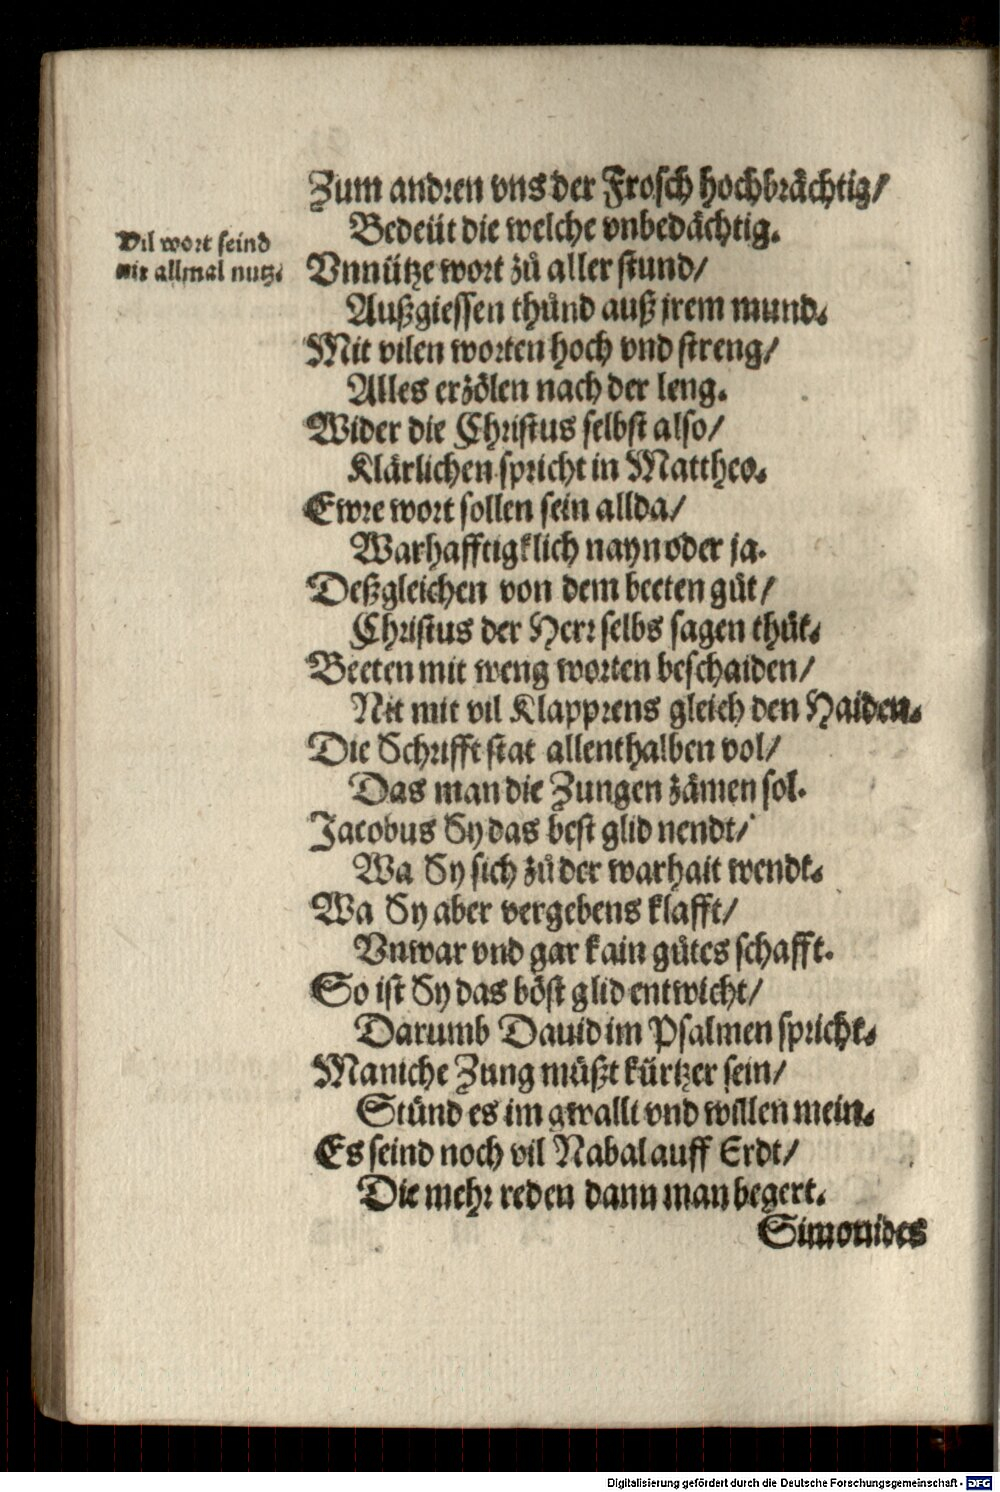 Zum andren vns der Frosch hochbrächtig/
Bedeüt die welche vnbedächtig.
Vil wort seind
nit allmal nutz.
Vnnütze wort zů aller stund/
Außgiessen thůnd auß jrem mund.
Mit vilen worten hoch vnd streng/
Alles erzölen nach der leng.
Wider die Christus selbst also/
Klärlichen spricht in Mattheo.
Ewre wort sollen sein allda/
Warhafftigklich nayn oder ja.
Deßgleichen von dem beeten gůt/
Christus der Herr selbs sagen thůt.
Beeten mit weng worten beschaiden/
Nit mit vil Klapprens gleich den Haiden.
Die Schrifft stat allenthalben vol/
Das man die Zungen zämen sol.
Jacobus Sy das best glid nendt/
Wa Sy sich zů der warhait wendt.
Wa Sy aber vergebens klafft/
Vnwar vnd gar kain gůtes schafft.
So ist Sy das böst glid entwicht/
Darumb Dauid im Psalmen spricht.
Maniche Zung müßt kürtzer sein/
Stůnd es im gwallt vnd willen mein.
Es seind noch vil Nabal auff Erdt/
Die mehr reden dann man begert.
Simonides
Digitalisierung gefördert durch die Deutsche Forschungsgemeinschaft - DFG